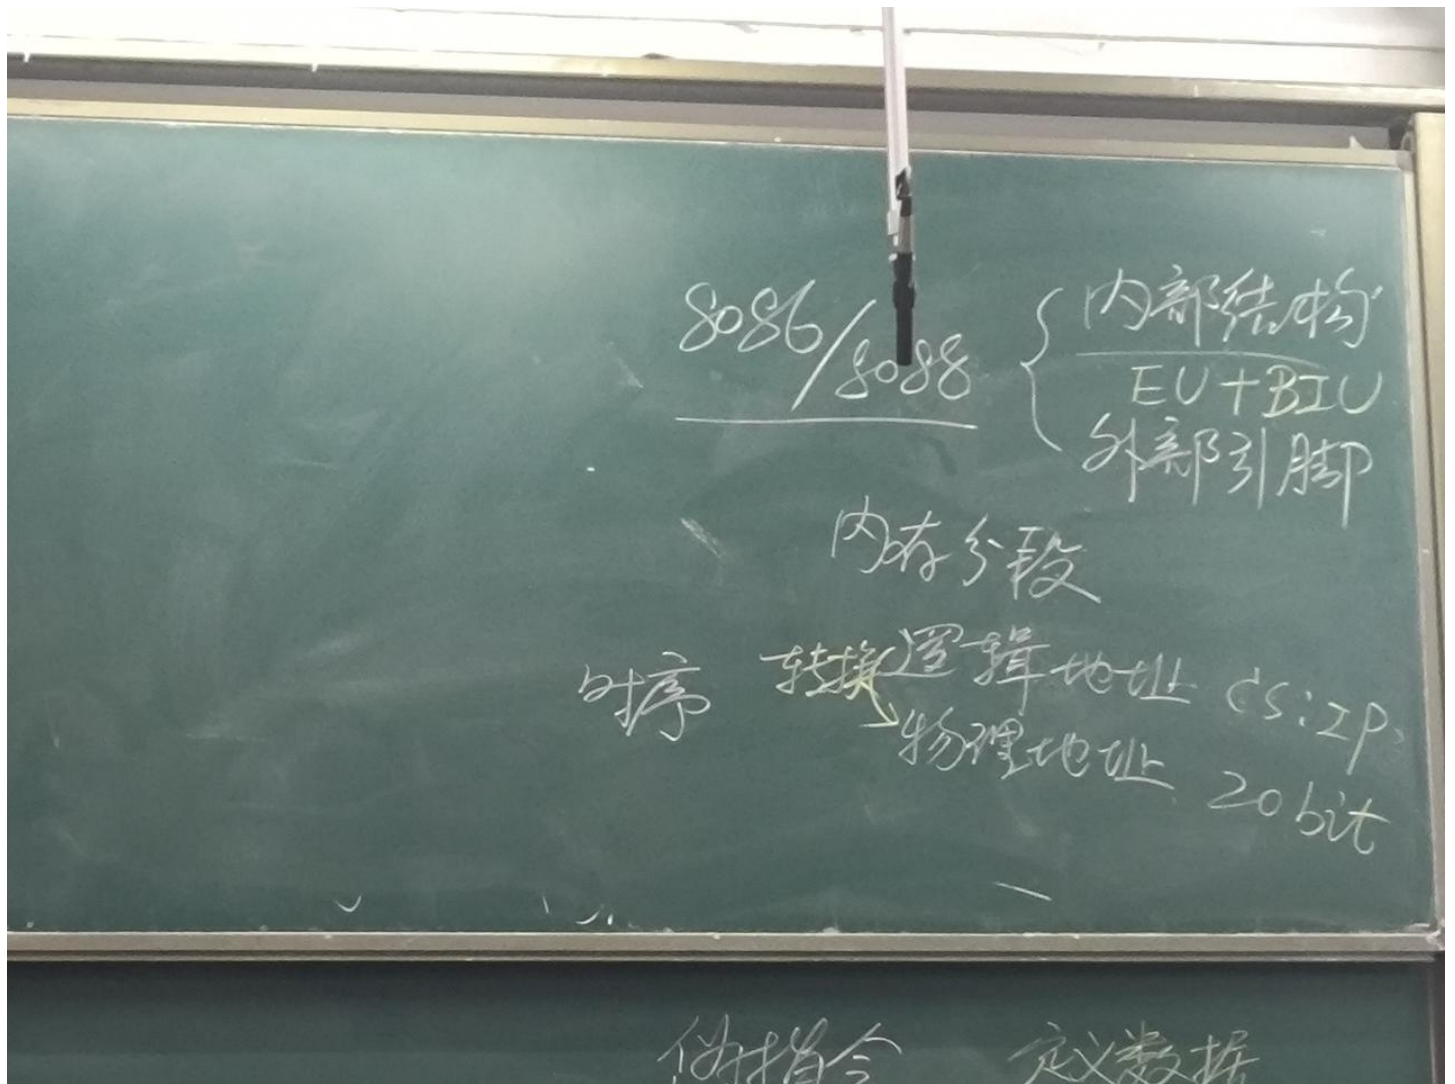 8086/8088
内部结构
EU+BIU
外部引脚
内存分段
时序 转换 逻辑地址 CS:IP
物理地址 20bit
伪指令 定义数据